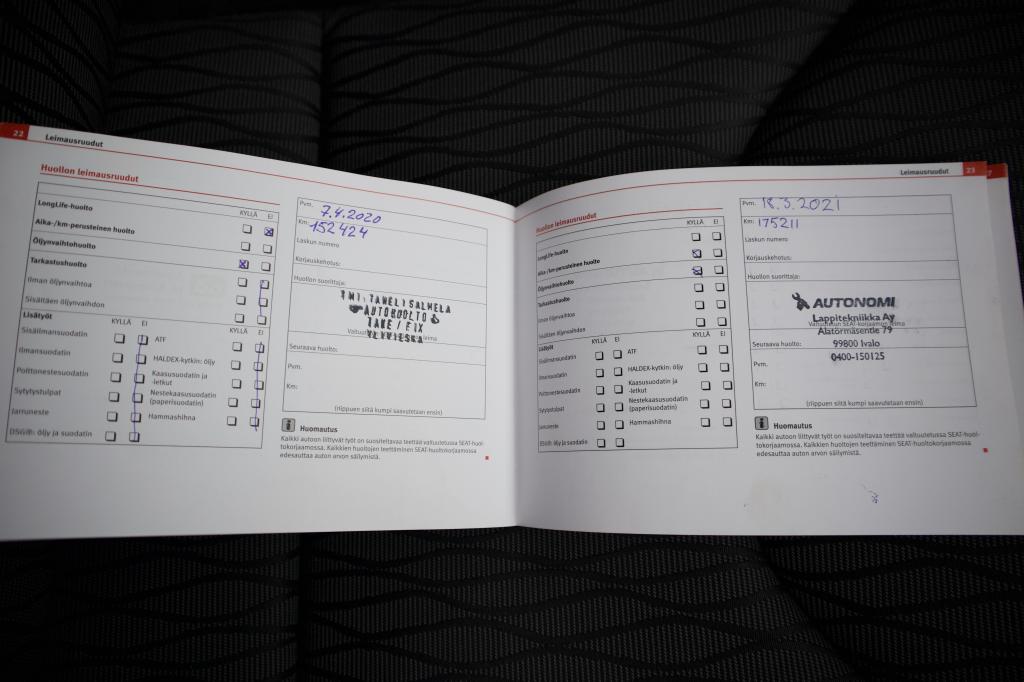 22
Leimausruudut
Huollon leimausruudut
KYLLÄ EI
LongLife-huolto
Aika-/km-perusteinen huolto
Öljynvaihtohuolto
Tarkastushuolto
Ilman öljynvaihtoa
Sisältäen öljynvaihdon
Lisätyöt KYLLÄ EI KYLLÄ EI
Sisäilmansuodatin ATF
Ilmansuodatin HALDEX-kytkin: öljy
Polttonestesuodatin Kaasusuodatin ja
-letkut
Sytytystulpat Nestekaasusuodatin
(paperisuodatin)
Jarruneste Hammashihna
DSG®: öljy ja suodatin
Pvm. 7.4.2020
Km: 152424
Laskun numero
Korjauskehotus:
Huollon suorittaja:
TMI: TANELI SALMELA
AUTOHUOLTO
TAKE / FIX
YLIVIESKA
Seuraava huolto:
Pvm.
Km:
(riippuen siitä kumpi saavutetaan ensin)
Huomautus
Kaikki autoon liittyvät työt on suositeltavaa teettää valtuutetussa SEAT-huol-
tokorjaamossa. Kaikkien huoltojen teettäminen SEAT-huoltokorjaamossa
edesauttaa auton arvon säilymistä.
Leimausruudut
23
7
Huollon leimausruudut
KYLLÄ EI
LongLife-huolto
Aika-/km-perusteinen huolto
Öljynvaihtohuolto
Tarkastushuolto
Ilman öljynvaihtoa
Sisältäen öljynvaihdon
Lisätyöt KYLLÄ EI KYLLÄ EI
Sisäilmansuodatin ATF
Ilmansuodatin HALDEX-kytkin: öljy
Polttonestesuodatin Kaasusuodatin ja
-letkut
Sytytystulpat Nestekaasusuodatin
(paperisuodatin)
Jarruneste Hammashihna
DSG®: öljy ja suodatin
Pvm. 18.3.2021
Km: 175211
Laskun numero
Korjauskehotus:
Huollon suorittaja:
AUTONOMI
Lappitekniikka Ay
Valtuutetun SEAT-korjaamon leima
Alatörmäsentie 79
Seuraava huolto: 99800 Ivalo
Pvm. 0400-150125
Km:
(riippuen siitä kumpi saavutetaan ensin)
Huomautus
Kaikki autoon liittyvät työt on suositeltavaa teettää valtuutetussa SEAT-huol-
tokorjaamossa. Kaikkien huoltojen teettäminen SEAT-huoltokorjaamossa
edesauttaa auton arvon säilymistä.